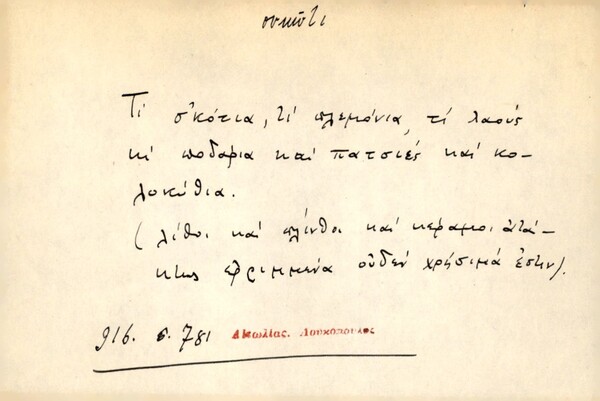 συκῶτι
Τί σ'κότια, τί πλεμόνια, τί λαούς
κί ποδάρια καί πατσιές καί κο-
λοκύθια.
(λίθοι καί πλίνθοι καί κέραμοι ἀτά-
κτως ἐρριμμένα οὐδέν χρήσιμά ἐστιν).
916. σ. 781 Αἰτωλίας. Λουκόπουλος